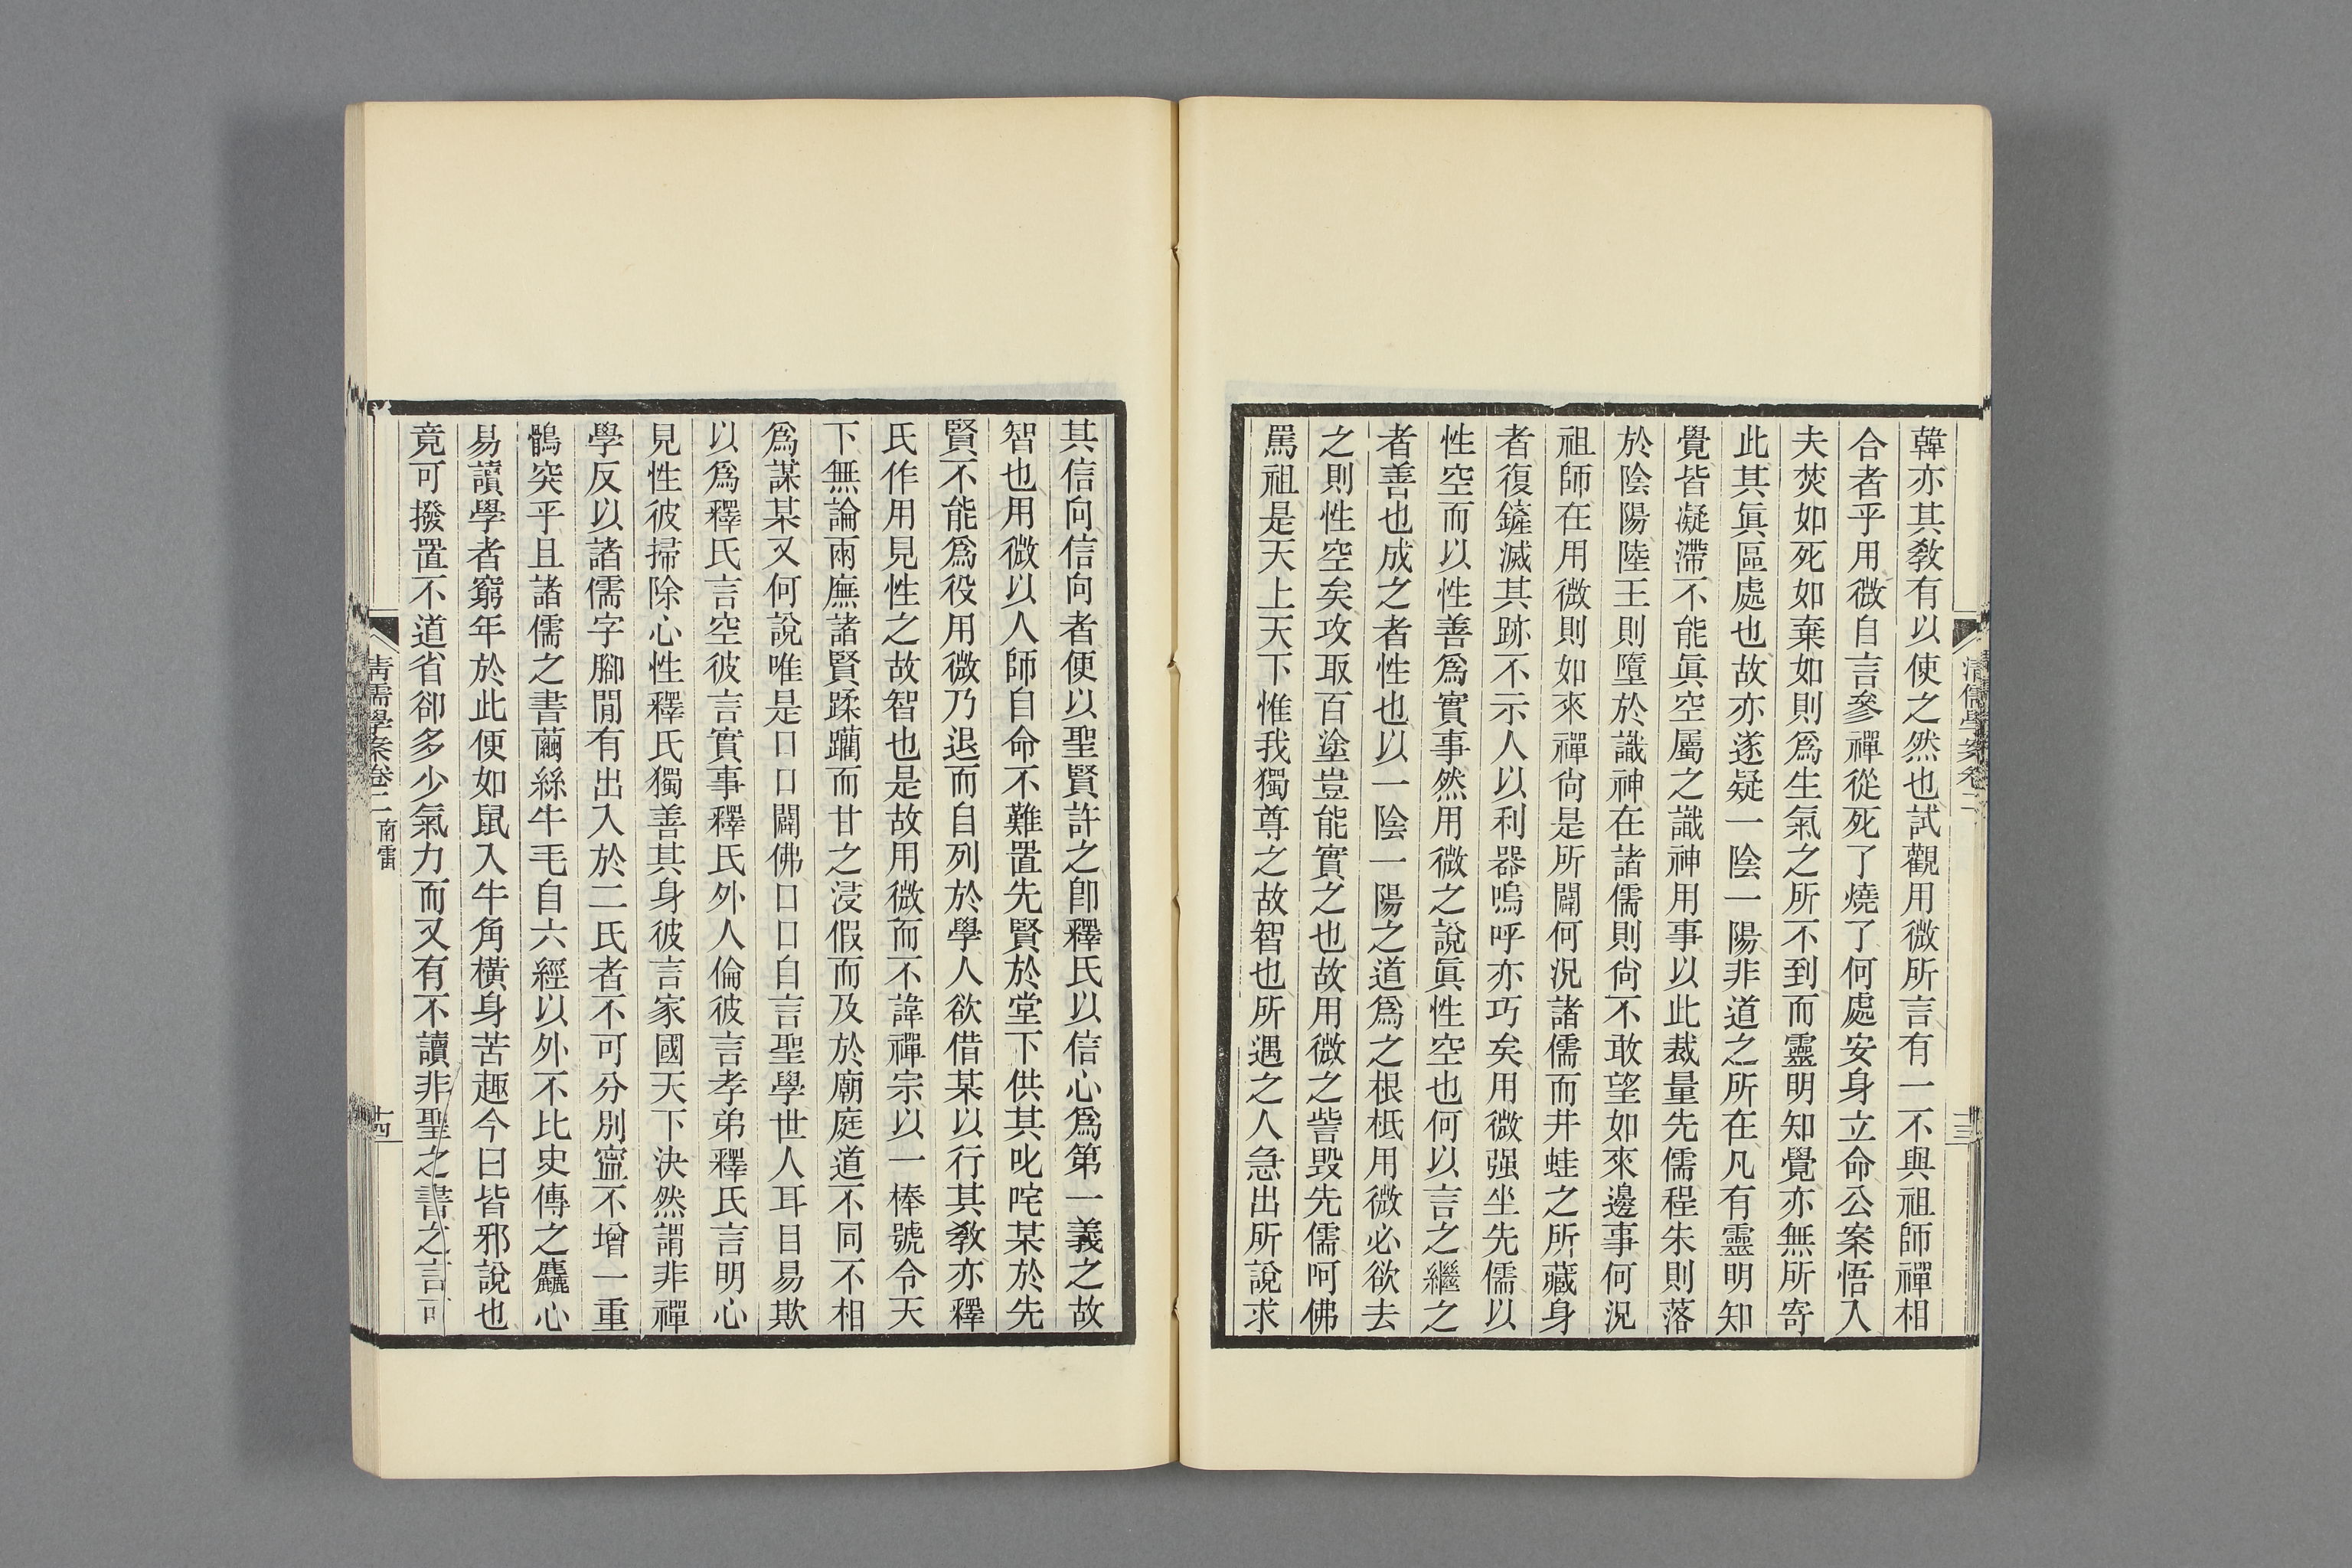 韓亦其敎有以使之然也試觀用微所言有一不與祖師禪相
合者乎用微自言參禪從死了燒了何處安身立命公案悟入
夫焚如死如棄如則爲生氣之所不到而靈明知覺亦無所寄
此其眞區處也故亦遂疑一陰一陽非道之所在凡有靈明知
覺皆凝滯不能眞空屬之識神用事以此裁量先儒程朱則落
於陰陽陸王則墮於識神在諸儒則尙不敢望如來邊事何況
祖師在用微則如來禪尙是所闢何況諸儒而井蛙之所藏身
者復鏟滅其跡不示人以利器嗚呼亦巧矣用微强坐先儒以
性空而以性善爲實事然用微之說眞性空也何以言之繼之
者善也成之者性也以一陰一陽之道爲之根柢用微必欲去
之則性空矣攻取百塗豈能實之也故用微之訾毀先儒呵佛
罵祖是天上天下惟我獨尊之故智也所遇之人急出所說求
清儒學案卷二
十三
其信向信向者便以聖賢許之卽釋氏以信心爲第一義之故
智也用微以人師自命不難置先賢於堂下供其叱咤某於先
賢不能爲役用微乃退而自列於學人欲借某以行其敎亦釋
氏作用見性之故智也是故用微而不諱禪宗以一棒號令天
下無論兩廡諸賢蹂躪而甘之浸假而及於廟庭道不同不相
爲謀某又何說唯是口口闢佛口口自言聖學世人耳目易欺
以爲釋氏言空彼言實事釋氏外人倫彼言孝弟釋氏言明心
見性彼掃除心性釋氏獨善其身彼言家國天下決然謂非禪
學反以諸儒字腳閒有出入於二氏者不可分別寍不增一重
鶻突乎且諸儒之書繭絲牛毛自六經以外不比史傳之麤心
易讀學者窮年於此便如鼠入牛角橫身苦趣今曰皆邪說也
竟可撥置不道省卻多少氣力而又有不讀非聖之書之言可
清儒學案卷二
南雷
十四